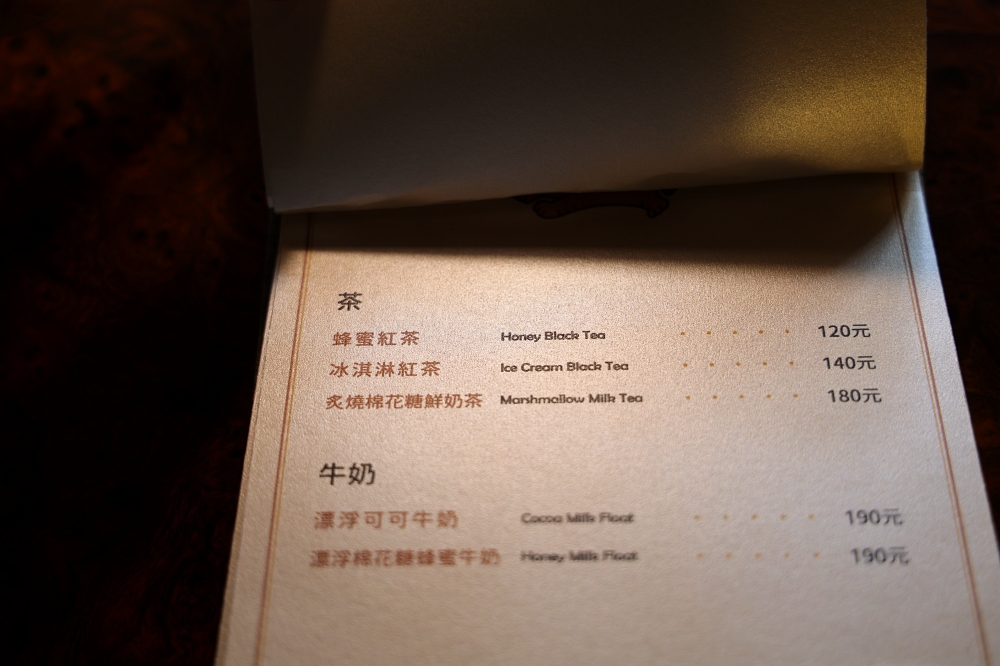 茶
蜂蜜紅茶 Honey Black Tea 120元
冰淇淋紅茶 Ice Cream Black Tea 140元
炙燒棉花糖鮮奶茶 Marshmallow Milk Tea 180元
牛奶
漂浮可可牛奶 Cocoa Milk Float 190元
漂浮棉花糖蜂蜜牛奶 Honey Milk Float 190元